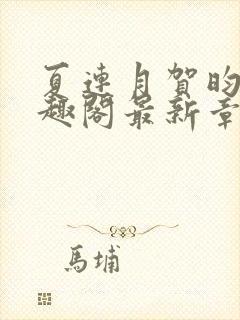 夏連月賀昀
趣閣最新章
馬埔